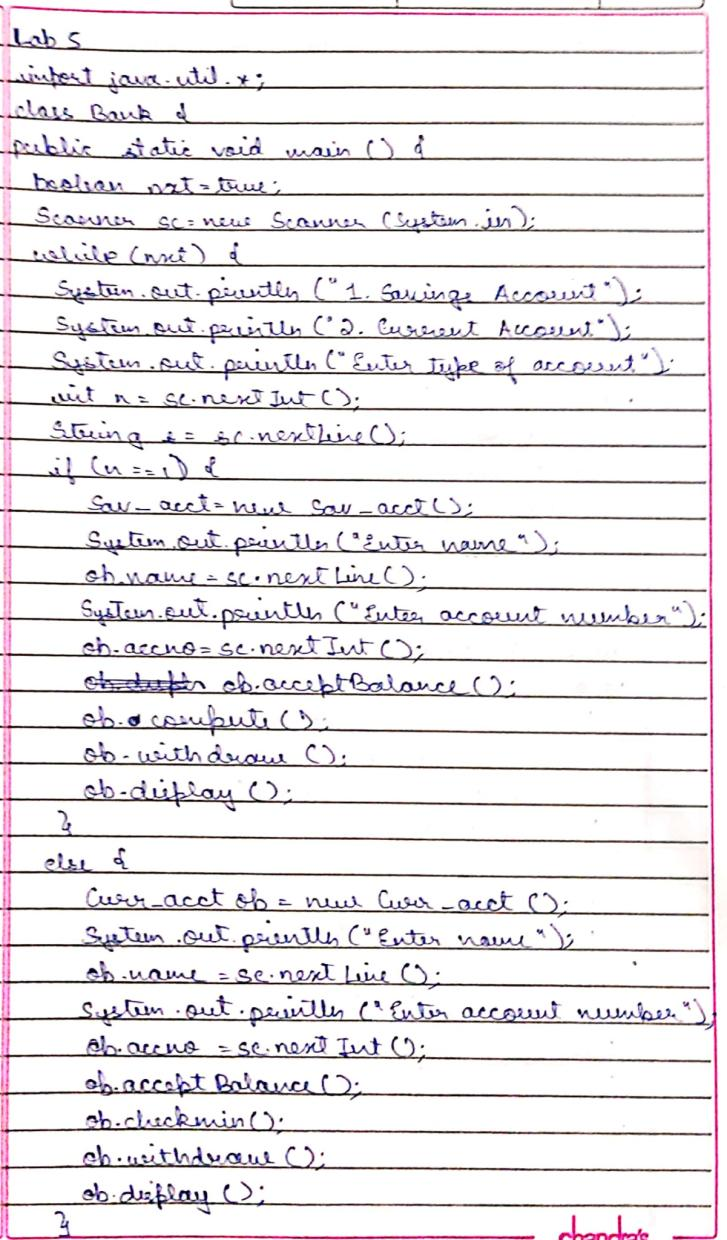 Lab 5
import java.util.*;
class Bank {
public static void main () {
boolean nxt = true;
Scanner sc = new Scanner (System.in);
while (nxt) {
System.out.println ("1. Savings Account");
System.out.println ("2. Current Account");
System.out.println ("Enter type of account");
int n = sc.nextInt ();
String s = sc.nextLine();
if (n == 1) {
Sav_acct = new Sav_acct();
System.out.println ("Enter name");
ob.name = sc.nextLine();
System.out.println ("Enter account number");
ob.accno = sc.nextInt ();
ob.acceptBalance ();
ob.compute ();
ob.withdraw ();
ob.display ();
}
else {
Curr_acct ob = new Curr_acct ();
System.out.println ("Enter name");
ob.name = sc.nextLine ();
System.out.println ("Enter account number");
ob.accno = sc.nextInt ();
ob.acceptBalance ();
ob.checkmin();
ob.withdraw ();
ob.display ();
}
chandra's